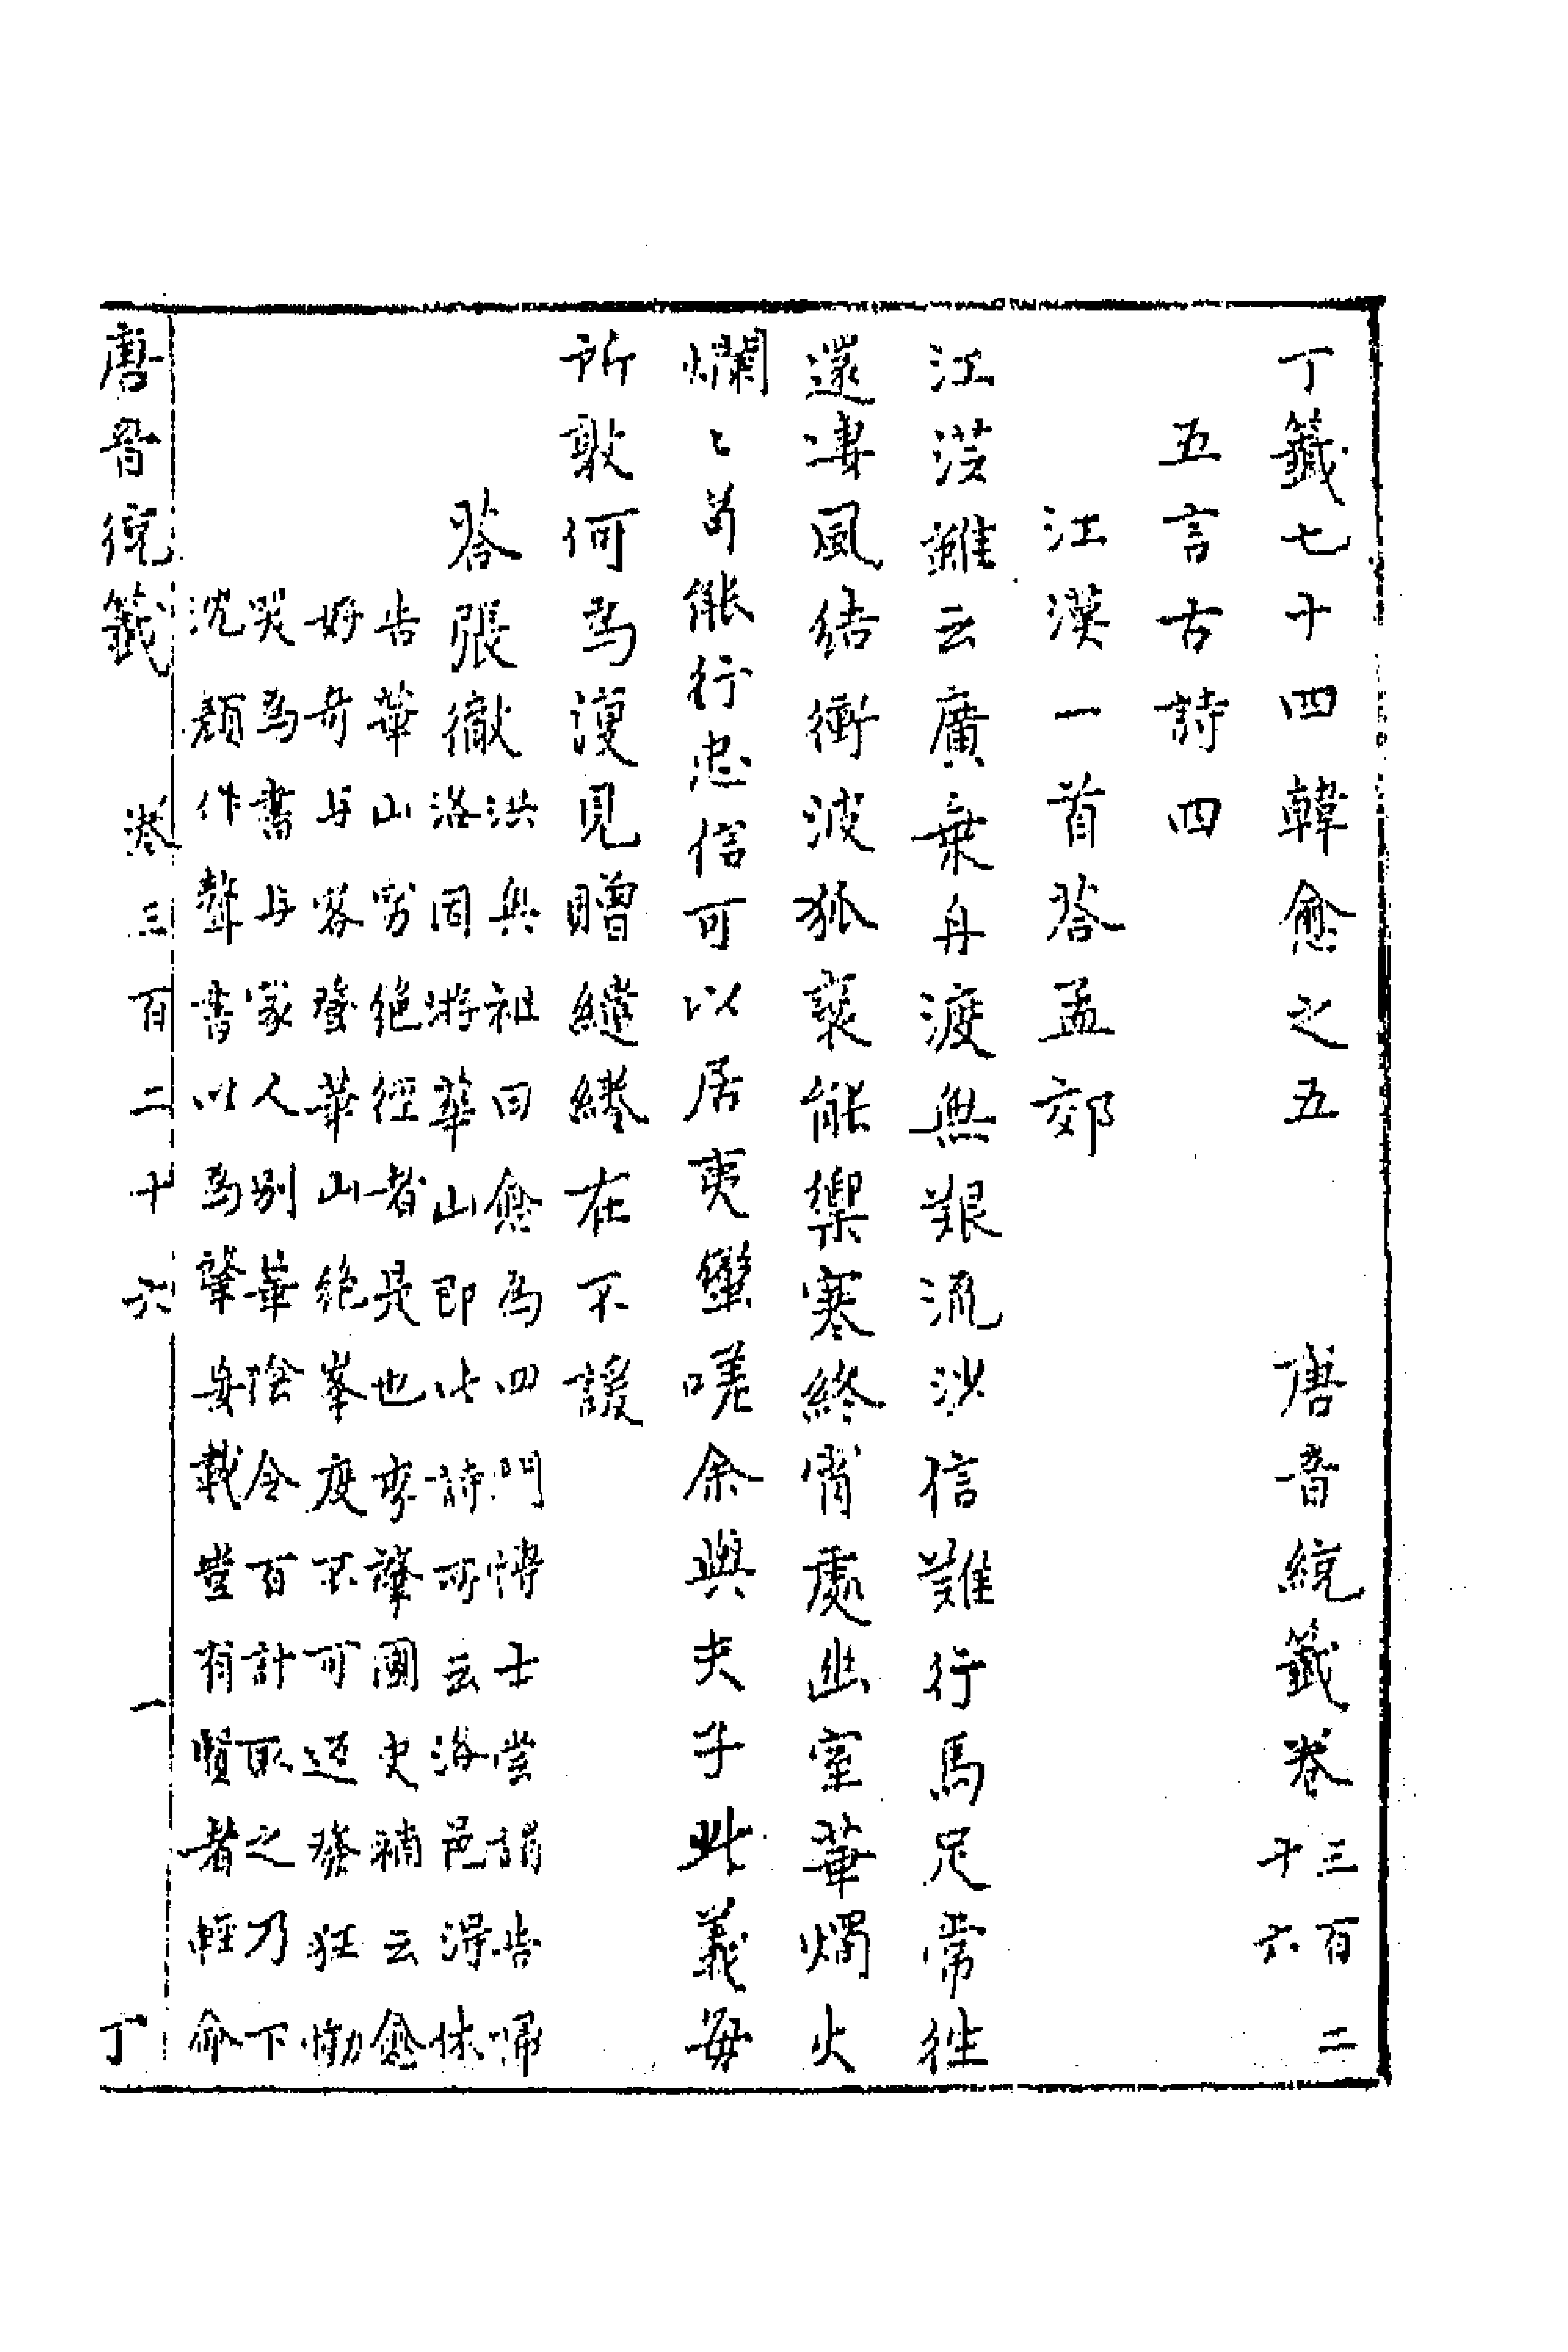 丁籤七十四韓愈之五　唐音統籤卷三百二十六
五言古詩四
江漢一首答孟郊
江漢雖云廣乗舟渡無艱流沙信難行馬足常往
還凄風結衝波狐裘能禦寒終宵處幽室華燭火
爛〻苟能行忠信可以居夷蠻嗟余與夫子此義每
所敦何爲復見贈繾綣在不諼
答張徹
洪興祖曰愈爲四門博士嘗謁告歸
洛因游華山即此詩所云洛邑得休
告華山窮絶徑者是也李肇國史補云愈
好奇与客登華山絶峯度不可返發狂慟
哭爲書与家人别華陰令百計取之乃下
沈顔作聱書以爲肇妄載豈有賢者輕命
唐音統籤　卷三百二十六　一　丁